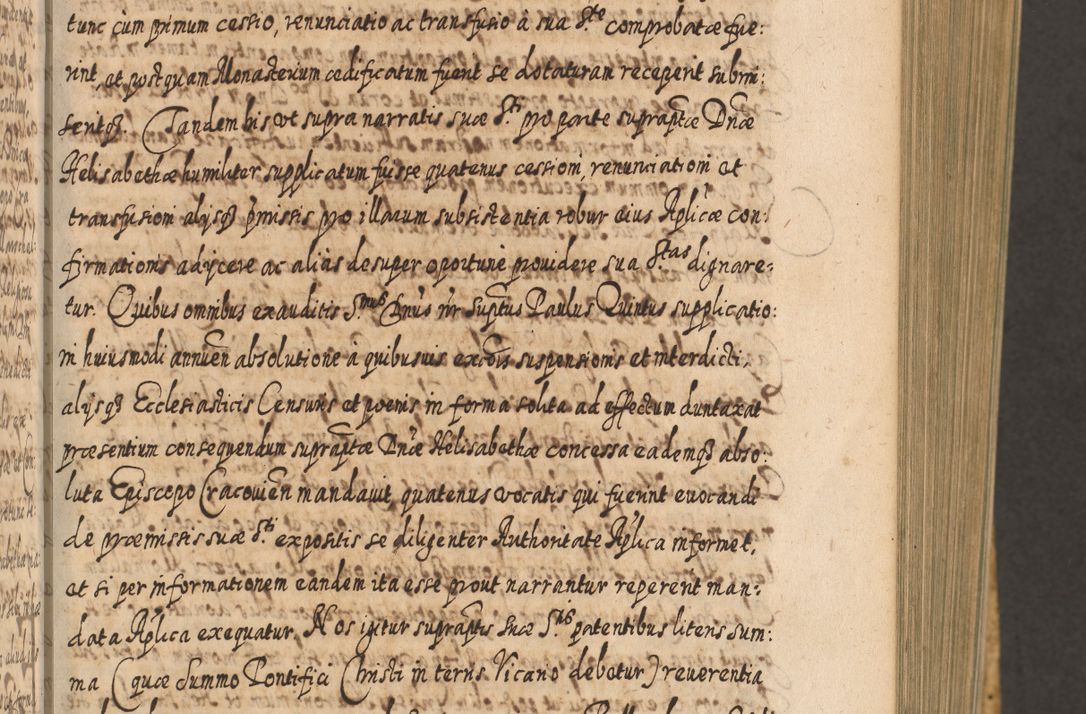 tunc cum primum cessio, renunciatio ac transfusio à sua S.te comprobatæ fue:
rint, et postquam Monasterium ædificatum fuerit se dotaturam receperit submi:
sentq3. Tandem his vt supra narratis suæ S.ti pro parte supraptæ Dnæ
Helisabethæ humiliter supplicatum fuisse quatenus cessioni, renunciationi et
transfusioni alysq3 pmissis pro illarum subsistentia robur eius Aplicæ con:
firmationis adycere ac alias desuper oportune prouidere sua S.tas dignare:
tur. Quibus omnibus exauditis S.mus Dnus nr suptus Paulus Quintus supplicatio:
ni huiusmodi annuen absolutione à quibusuis excois suspensionis et interdicti,
alysq3 Ecclesiasticis Censuris et pœnis in forma solita ad effectum duntaxat
præsentium consequendum supraptæ Dnæ Helisabethæ concessa eademq3 abso:
luta Episcopo Cracouien mandauit, quatenus vocatis qui fuerint euocandi
de præmissis suæ S.ti expositis se diligenter Authoritate Aplica informet,
et si per informationem eandem ita esse prout narrantur reperent man:
data Aplica exequatur, Nos igitur supraptis suæ S.tis patentibus literis sum:
ma (quæ Summo Pontifici Christi in terris Vicario debetur) reuerentia